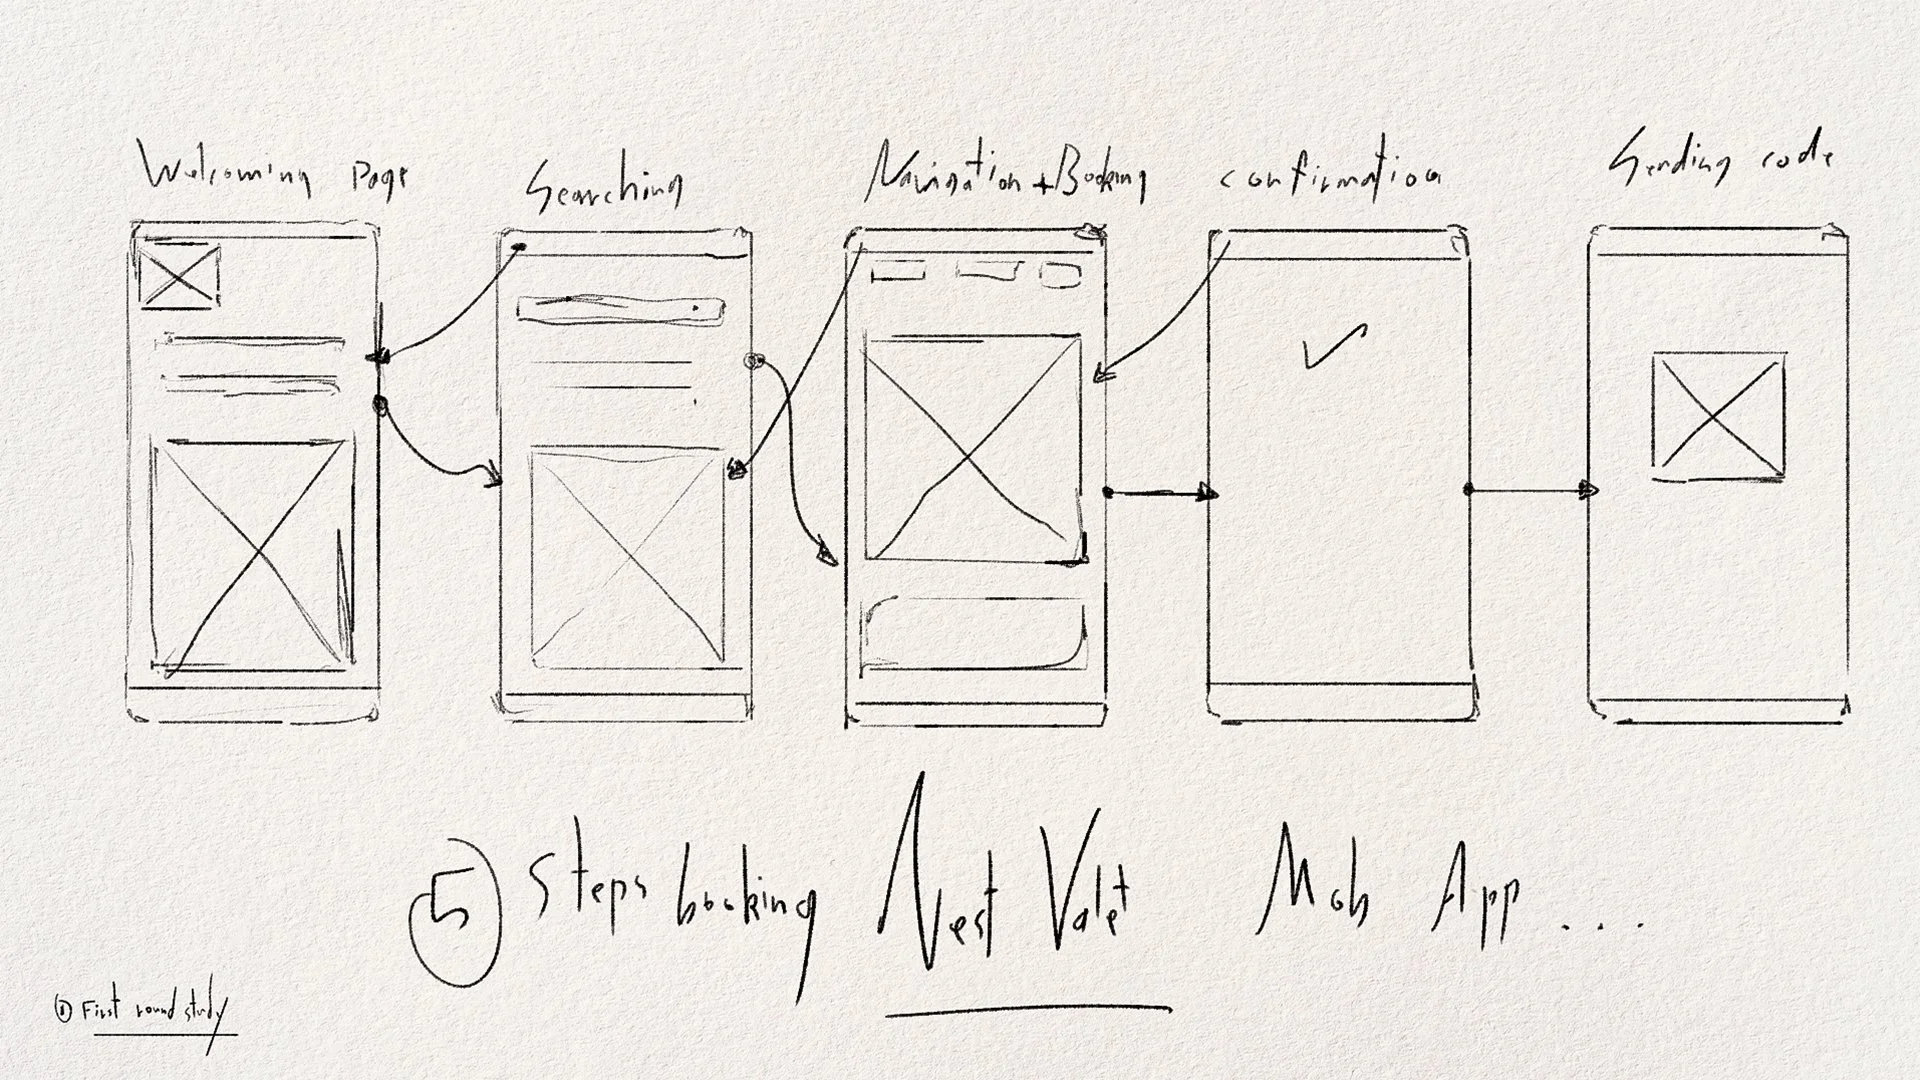 Welcoming Page
Searching
Navigation + Booking
confirmation
Sending code
5 Steps booking Nest Valet Mob App ...
① First round study